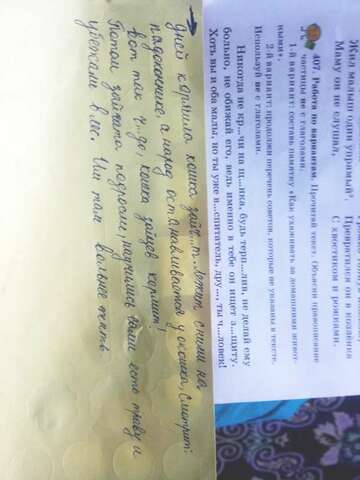 Жил малыш один упрямый,
Маму он не слушал,
Превратился он в козлёнка
С хвостиком и рожками.
407. Работа по вариантам. Прочитай текст. Объясни правописание
частицы не с глаголами.
1-й вариант: составь памятку «Как ухаживать за домашними живот-
ными».
2-й вариант: продолжи перечень советов, которые не указаны в тексте.
Используй не с глаголами.
Никогда не кр...чи на щ...нка, будь терп...лив, не делай ему
больно, не обижай его, ведь именно в тебе он ищет з...щиту.
Хоть вы и оба малы, но ты уже в...спитатель, дру..., ты ч...ловек!
Дней кормила кошка зайч...т. Лежит с ними на
подоконнике, а народ останавливается у окошка, смотрит:
вот так ч..до, кошка зайцев кормит!
Потом зайчата подросли, научились сами есть траву и
убежали в лес. Им там вольнее жить